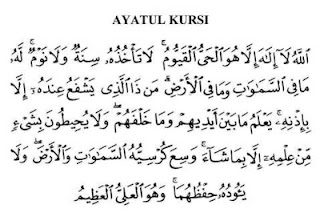 AYATUL KURSI
اللَّهُ لَا إِلَٰهَ إِلَّا هُوَ الْحَيُّ الْقَيُّومُ ۚ لَا تَأْخُذُهُ سِنَةٌ وَلَا نَوْمٌ ۚ لَّهُ
مَا فِي السَّمَاوَاتِ وَمَا فِي الْأَرْضِ ۗ مَن ذَا الَّذِي يَشْفَعُ عِندَهُ إِلَّا
بِإِذْنِهِ ۚ يَعْلَمُ مَا بَيْنَ أَيْدِيهِمْ وَمَا خَلْفَهُمْ ۖ وَلَا يُحِيطُونَ بِشَيْءٍ
مِّنْ عِلْمِهِ إِلَّا بِمَا شَاءَ ۚ وَسِعَ كُرْسِيُّهُ السَّمَاوَاتِ وَالْأَرْضَ ۖ وَلَا
يَئُودُهُ حِفْظُهُمَا ۚ وَهُوَ الْعَلِيُّ الْعَظِيمُ